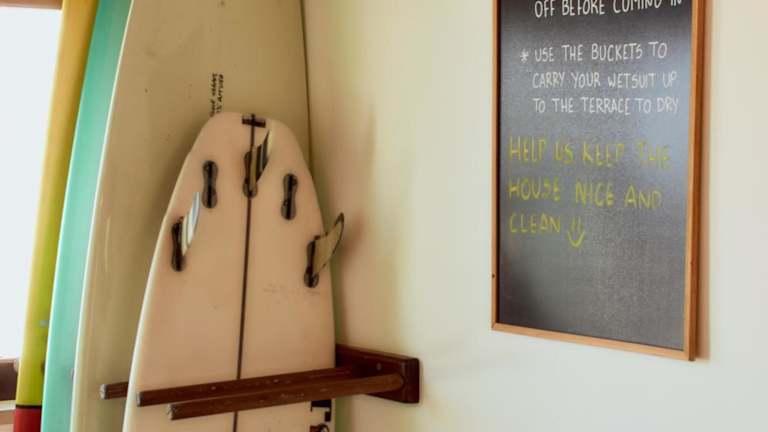 OFF BEFORE COMING IN
* USE THE BUCKETS TO
CARRY YOUR WETSUIT UP
TO THE TERRACE TO DRY
HELP US KEEP THE
HOUSE NICE AND
CLEAN